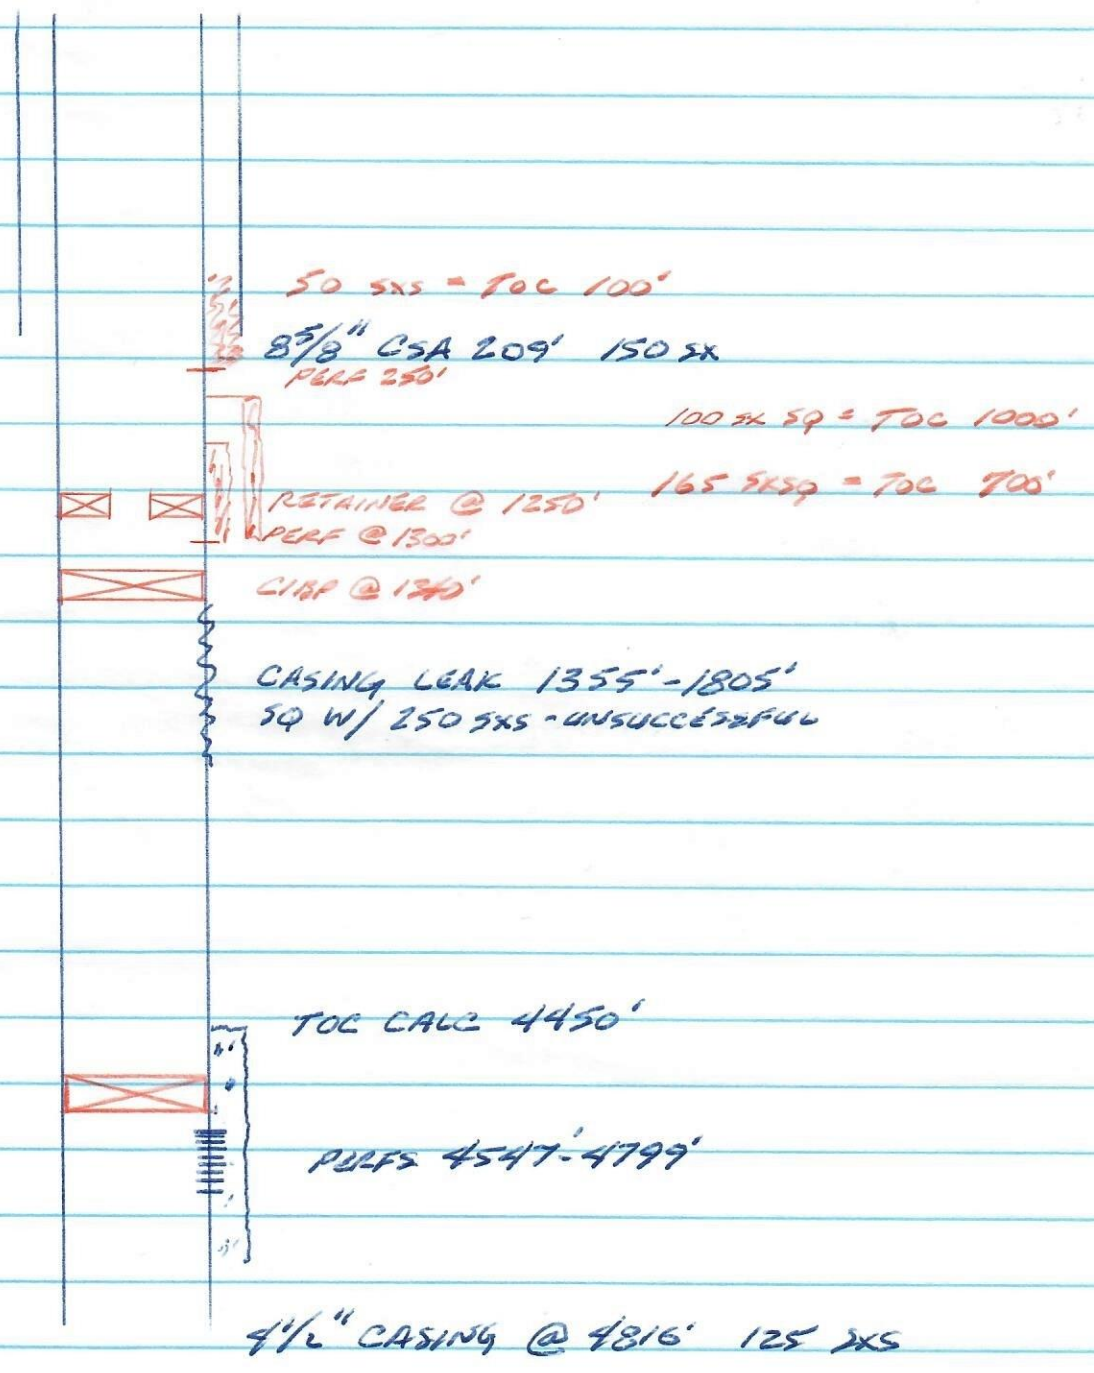 50 SXS = TOC 100'
8 5/8" CSA 209' 150 SX
PERF 250'
100 SX SQ = TOC 1000'
165 SXSQ = TOC 700'
RETAINER @ 1250'
PERF @ 1300'
CIBP @ 1340'
CASING LEAK 1355'-1805'
SQ W/ 250 SXS - UNSUCCESSFUL
TOC CALC 4450'
PERFS 4547'-4799'
4 1/2" CASING @ 4816' 125 SXS